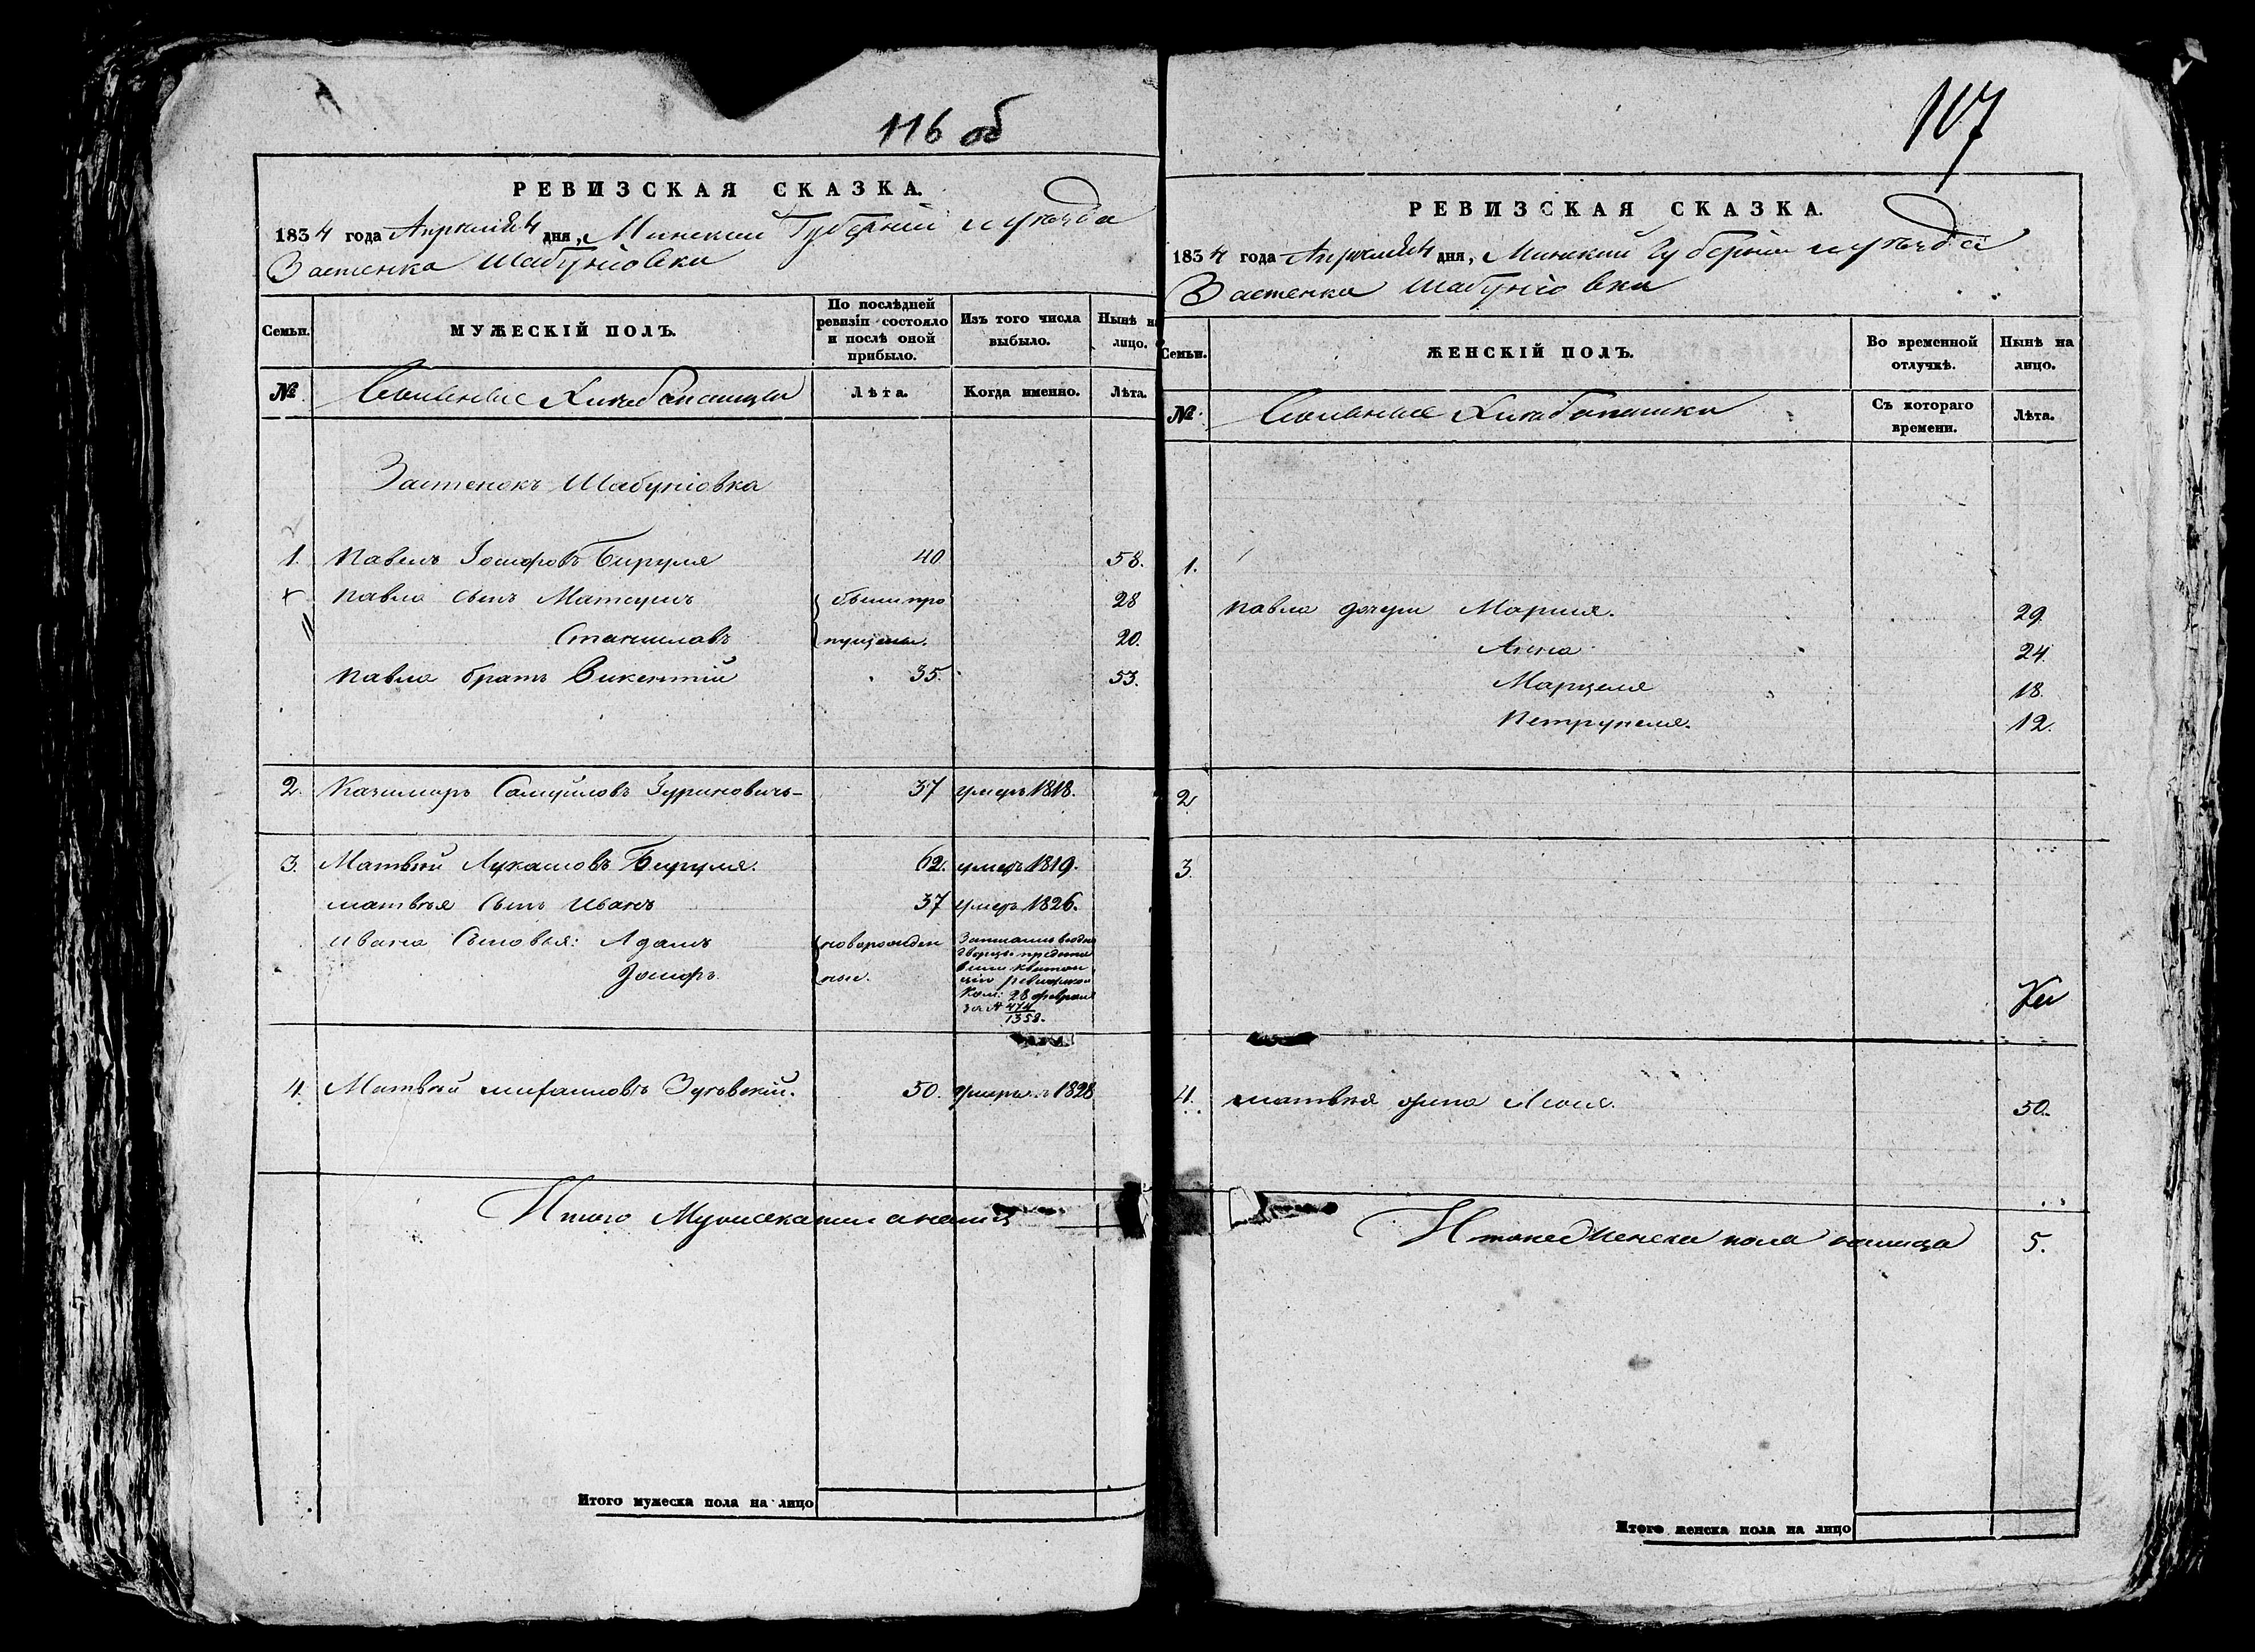 116 об
РЕВИЗСКАЯ СКАЗКА.
1834 года Апреля 24 дня, Минской Губерніи и уѣзда
Застенка Шабуніовки
Семьи.
МУЖЕСКІЙ ПОЛЪ.
По послѣдней ревизіи состояло и послѣ оной прибыло.
Изъ того числа выбыло.
Нынѣ на лицо.
№
Вольные Хлебопашцы
Лѣта.
Когда именно.
Лѣта.
Застенокъ Шабуніовка
1. Павелъ Іосифовъ Бируля 40 58.
Павла сынъ Матеушъ были про 28
Станиславъ пущены. 20.
Павла братъ Викентій 35. 53.
2. Казимиръ Самуйловъ Зуриновичъ 37 умеръ 1818.
3. Матвѣй Лукашовъ Бируля. 62. умеръ 1819.
Матвѣя сынъ Иванъ 37 умеръ 1826.
Ивана сыновья: Адамъ новорожден
Іосифъ ные.
28 февраля
за № 474
1358.
4. Матвѣй Михайловъ 50. умеръ въ 1828
Итого Мужеска пола на лицо
Итого мужеска пола на лицо
117
РЕВИЗСКАЯ СКАЗКА.
1834 года Апреля 24 дня, Минской Губерніи и уѣзда
Застенка Шабуніовки
Семьи.
ЖЕНСКІЙ ПОЛЪ.
Во временной отлучкѣ.
Нынѣ на лицо.
№
Вольные Хлебопашки
Съ котораго времени.
Лѣта.
1.
Павла дочери Марія. 29.
Анна 24.
Марцеля 18.
Петрунеля. 12.
2
3.
4. Матвѣя жена 50.
Итого Женска пола налицо 5.
Итого женска пола на лицо